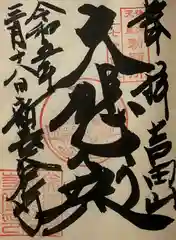 奉拝 吉田山
大悲殿
令和五年
三月十八日 新長谷寺